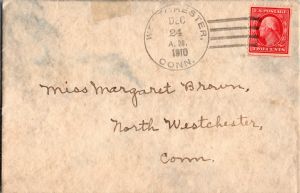 WESTCHESTER,
DEC
24
A.M.
1910
CONN.
U.S. POSTAGE
TWO CENTS
Miss Margaret Brown,
North Westchester,
Conn.